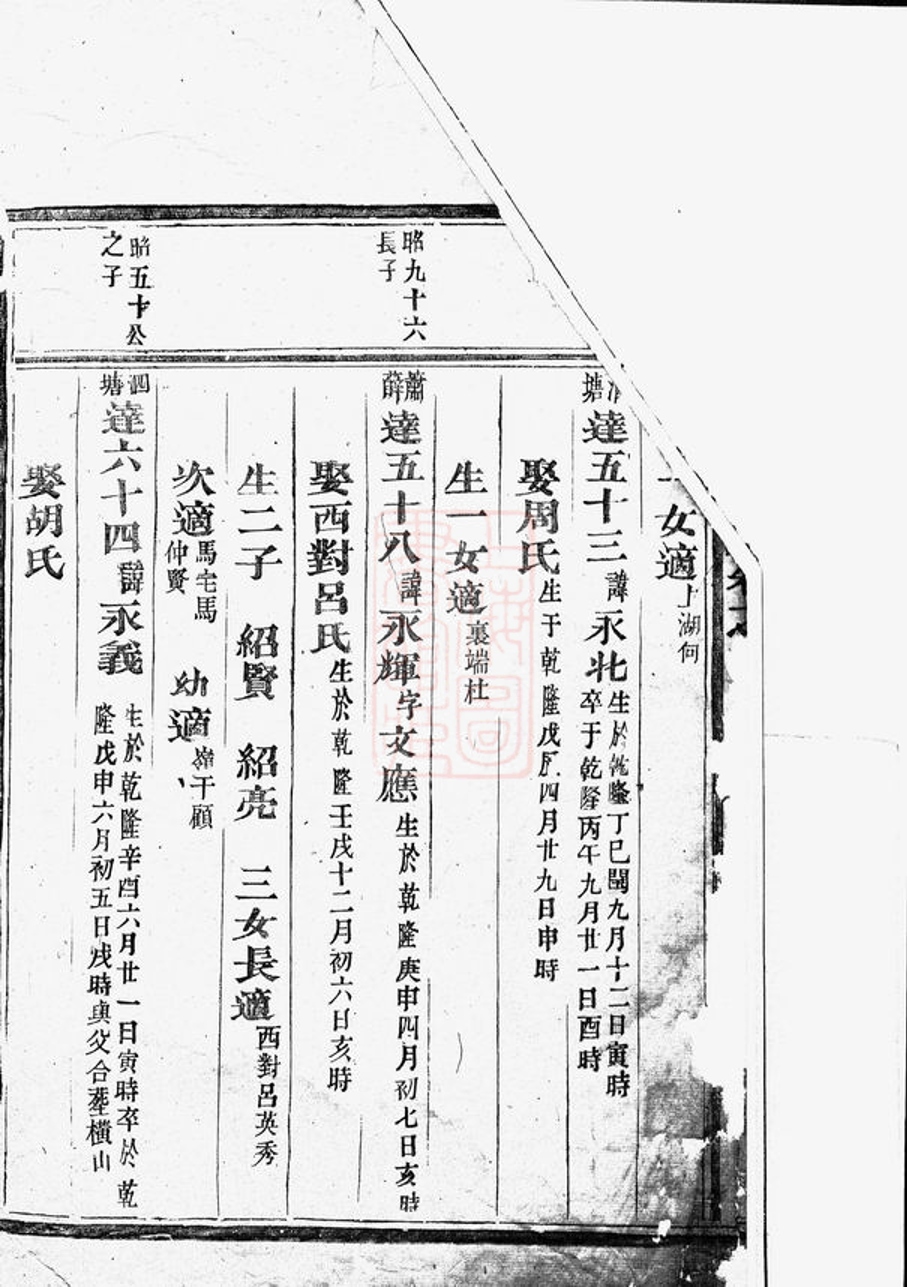 女適上湖何
塘達五十三諱永北生於乾隆丁巳閏九月十二日寅時
卒于乾隆丙午九月廿一日酉時
娶周氏生于乾隆戊辰四月廿九日申時
生一女適裏端杜
昭九十六
長子
蕭
薛達五十八諱永輝字文應生於乾隆庚申四月初七日亥時
娶西對呂氏生於乾隆壬戌十二月初六日亥時
生二子 紹賢 紹亮 三女長適西對呂英秀
次適馬宅馬
仲賢 幼適嶺干顧
昭五十公
之子
泗
塘達六十四諱永義生於乾隆辛酉六月廿一日寅時卒於乾
隆戊申六月初五日戌時與父合塟橫山
娶胡氏